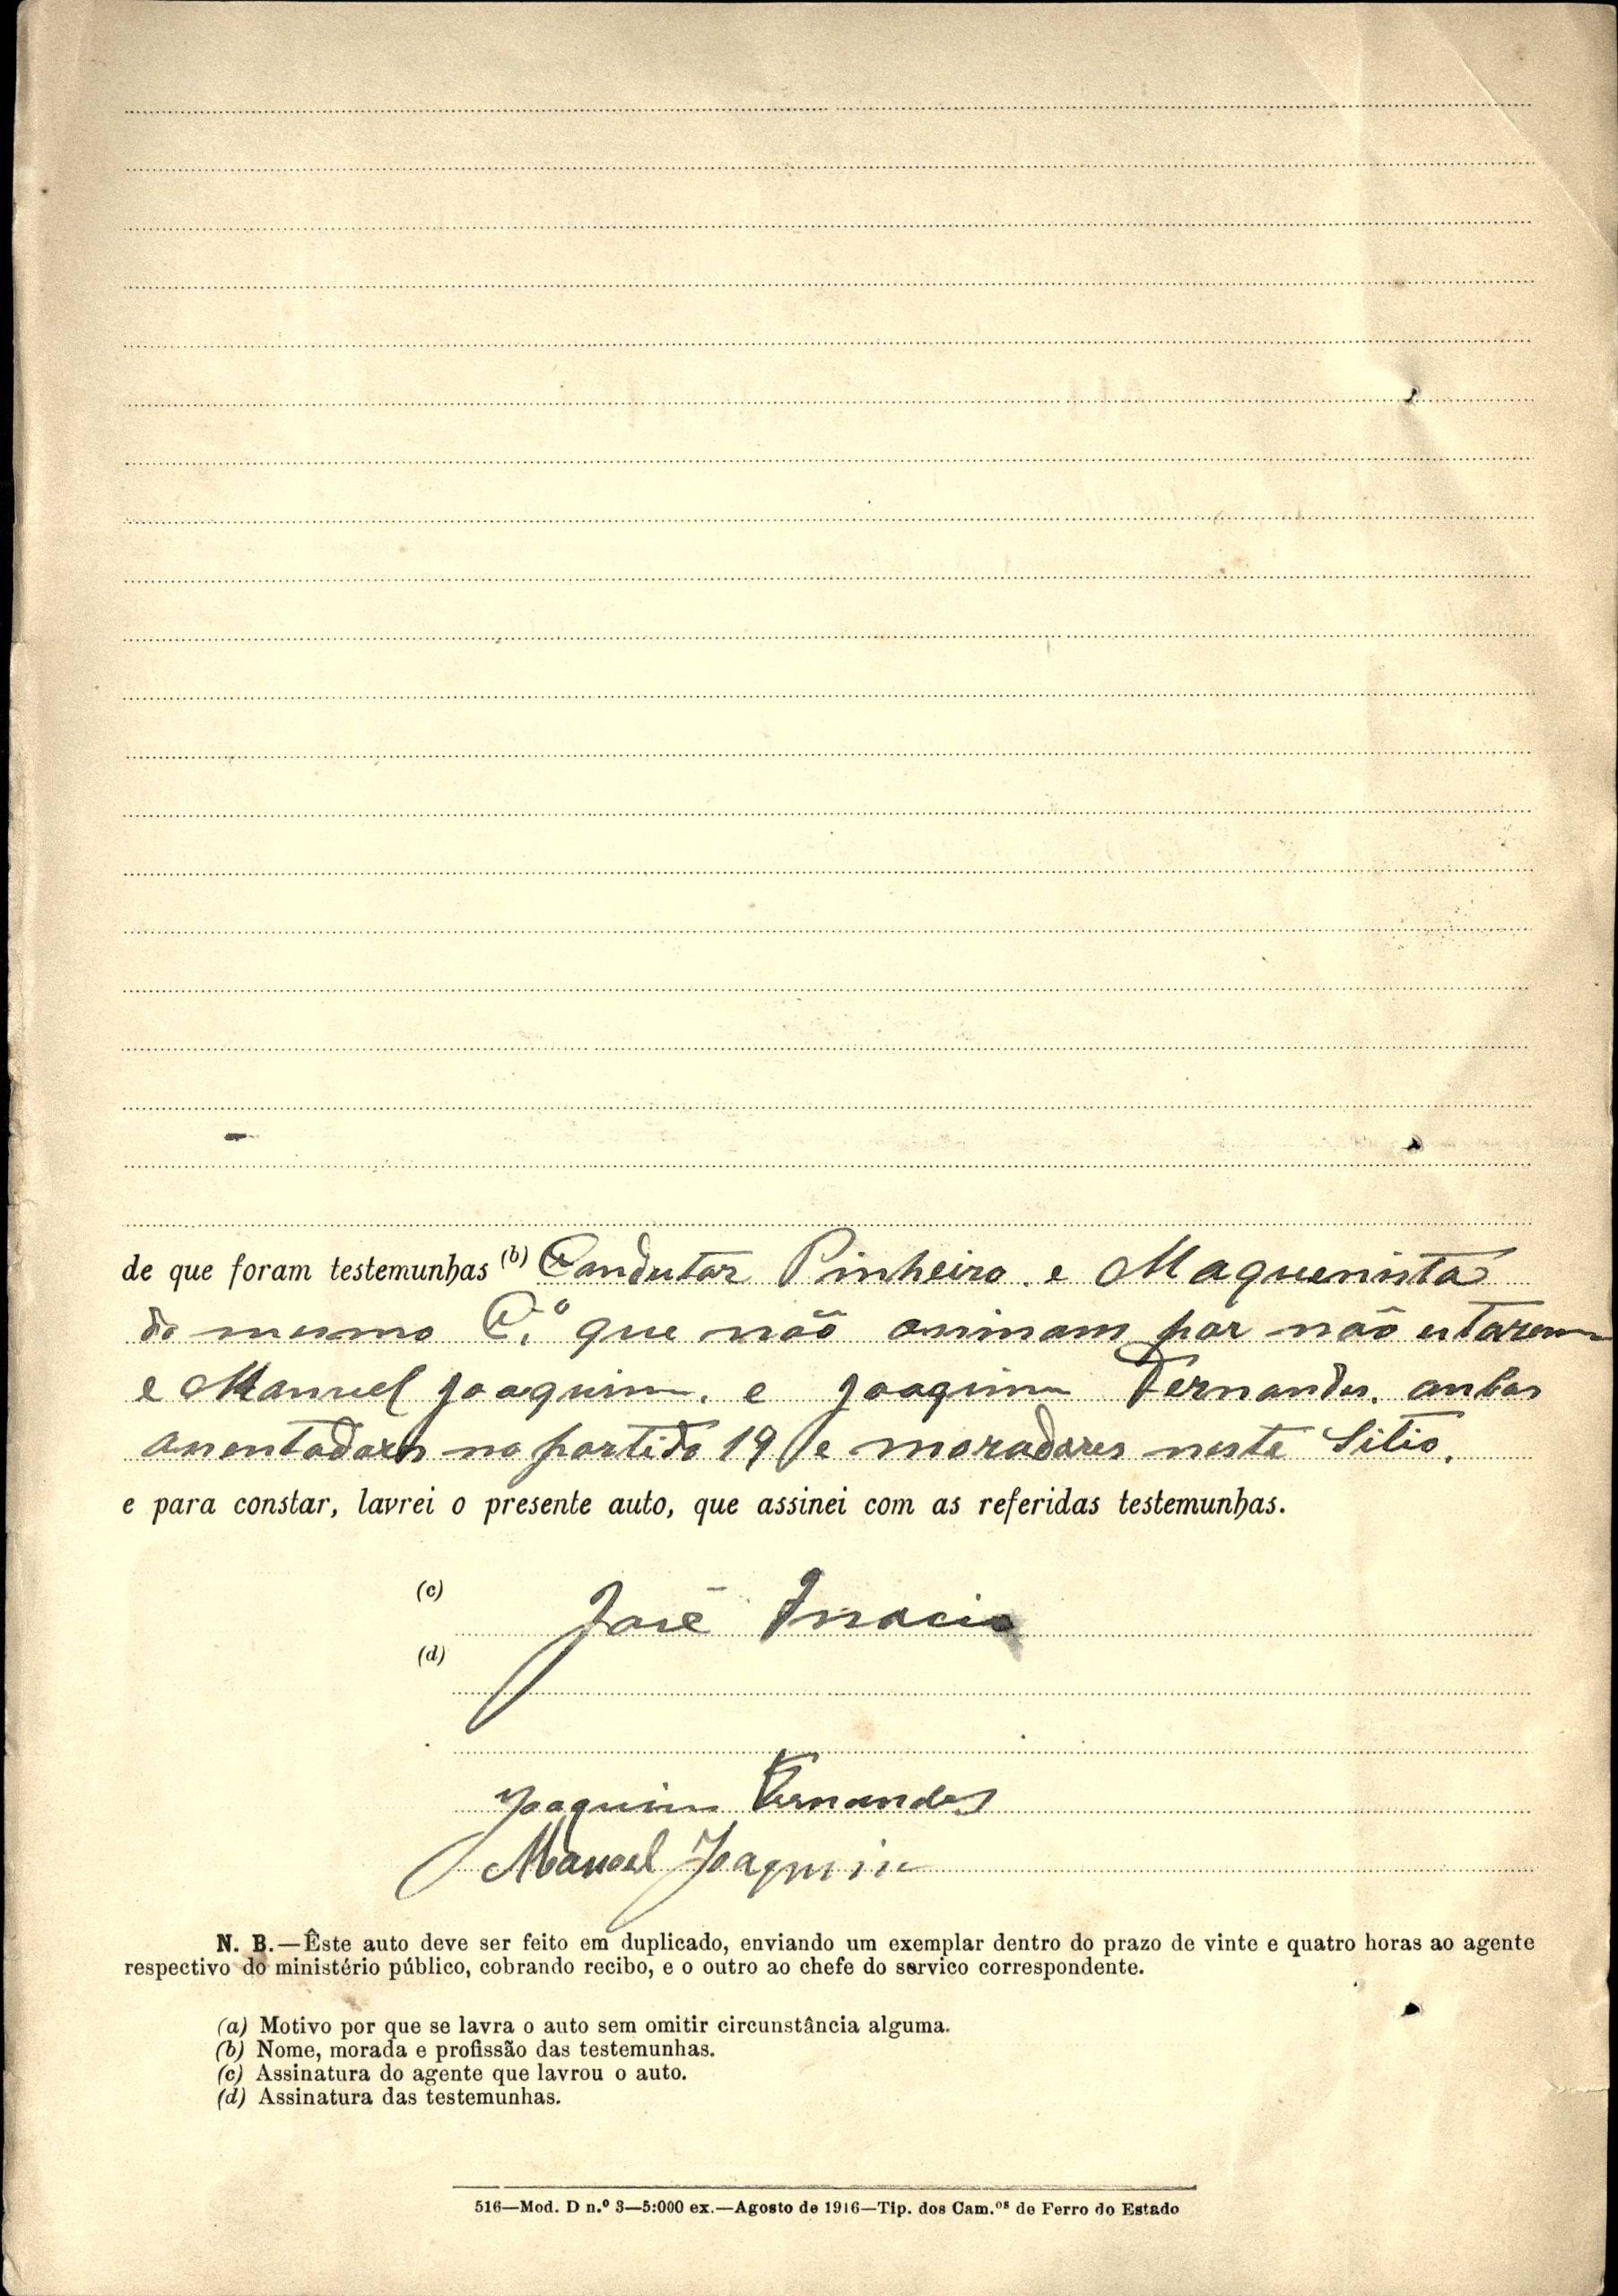 de que foram testemunhas (b) Condutor Pinheiro. e Maquenista
do mesmo C.º que não asinam por não estarem
e Manuel Joaquim. e Joaquim Fernandes. anbos
asentadores no partido 19 e moradores neste Sitio.
e para constar, lavrei o presente auto, que assinei com as referidas testemunhas.
(c) José Inacio
(d)
Joaquim Fernandes
Manoel Joaquim
N. B.—Êste auto deve ser feito em duplicado, enviando um exemplar dentro do prazo de vinte e quatro horas ao agente
respectivo do ministério público, cobrando recibo, e o outro ao chefe do servico correspondente.
(a) Motivo por que se lavra o auto sem omitir circunstância alguma.
(b) Nome, morada e profissão das testemunhas.
(c) Assinatura do agente que lavrou o auto.
(d) Assinatura das testemunhas.
516—Mod. D n.º 3—5:000 ex.—Agosto de 1916—Tip. dos Cam.os de Ferro do Estado